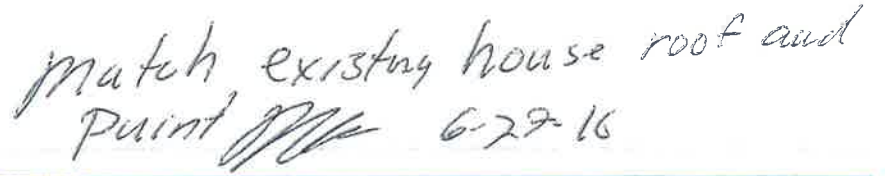 match existing house roof and
paint 6-29-16